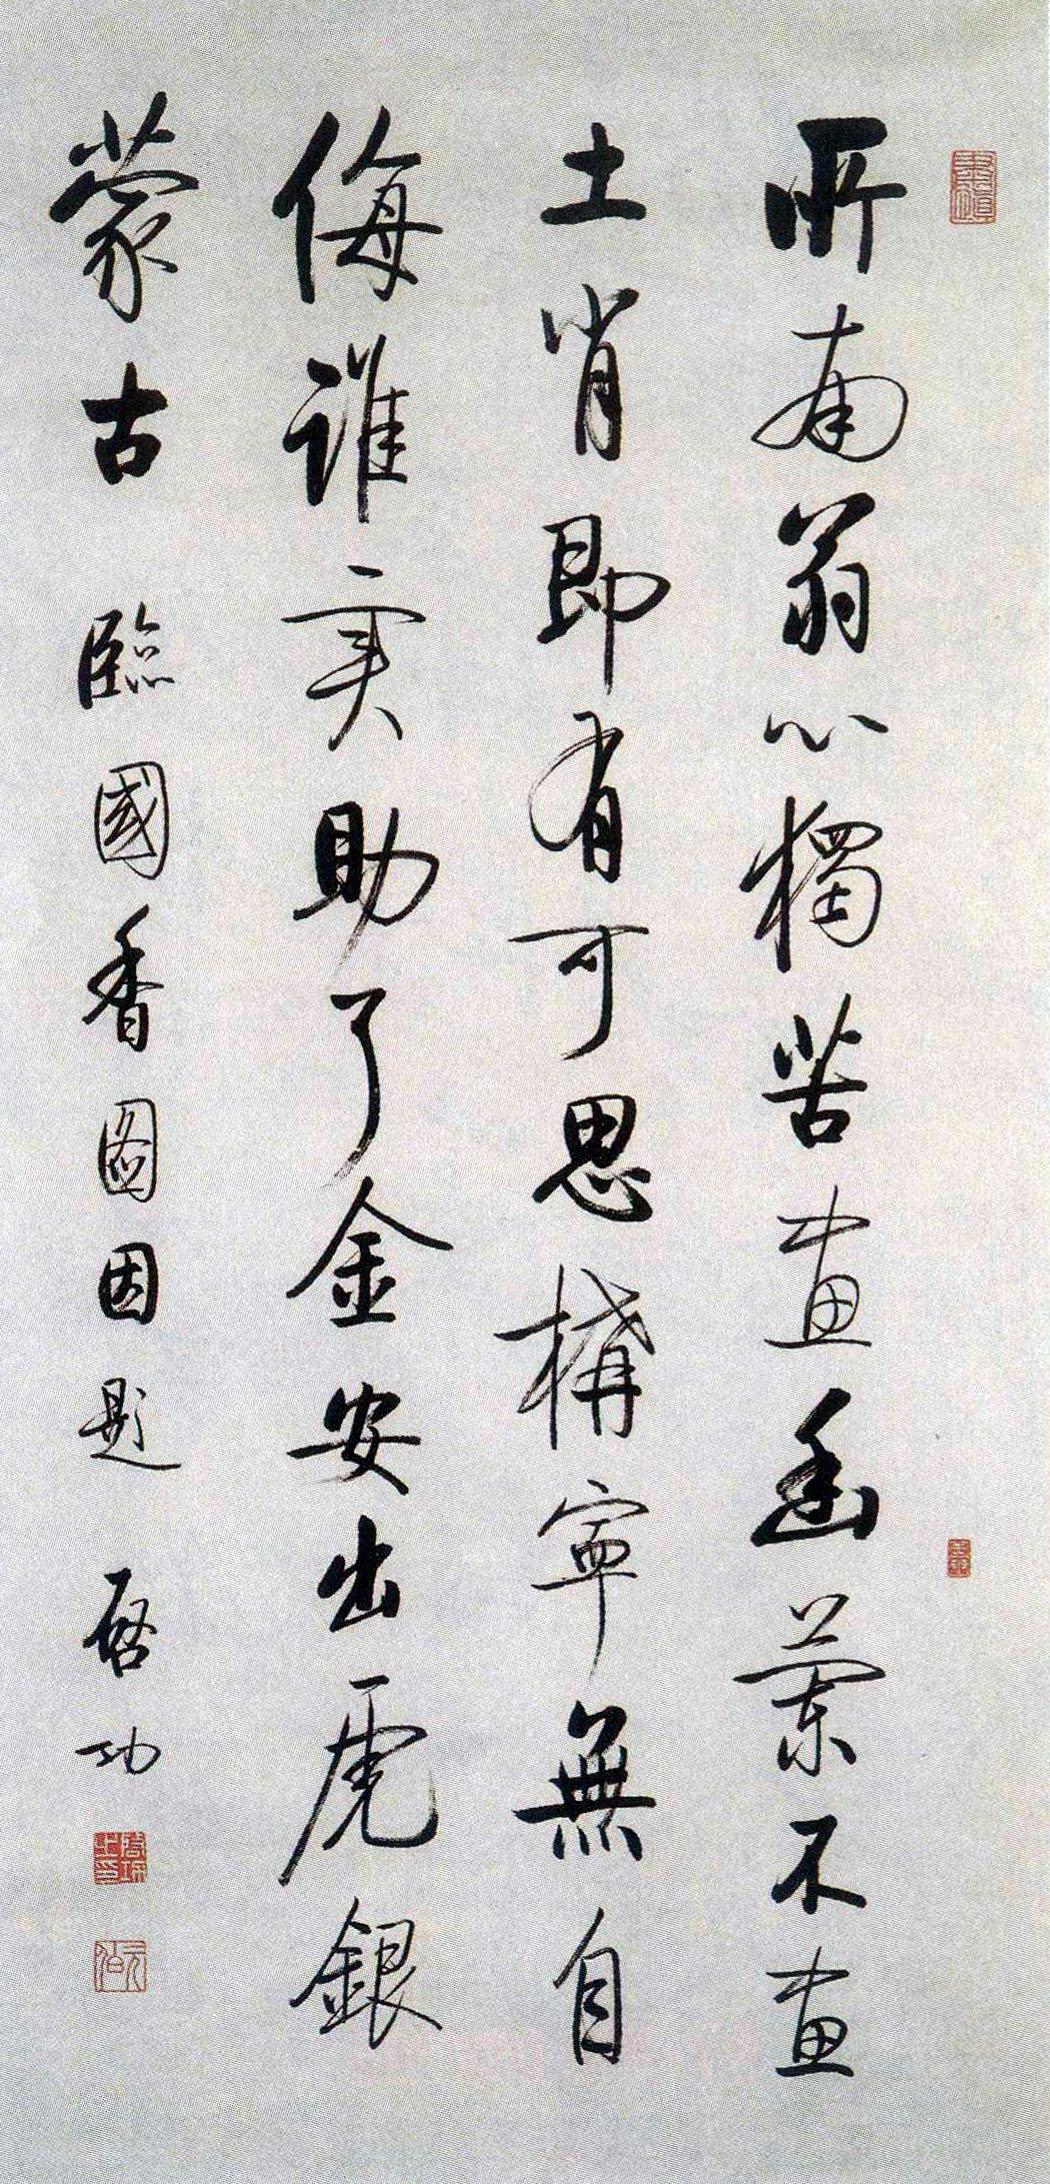 所南翁心獨苦畫幽蘭不畫
土肖即有可思構寧無自
侮誰実助了金安出虎銀
蒙古 臨國香圖因題 啓功
元白